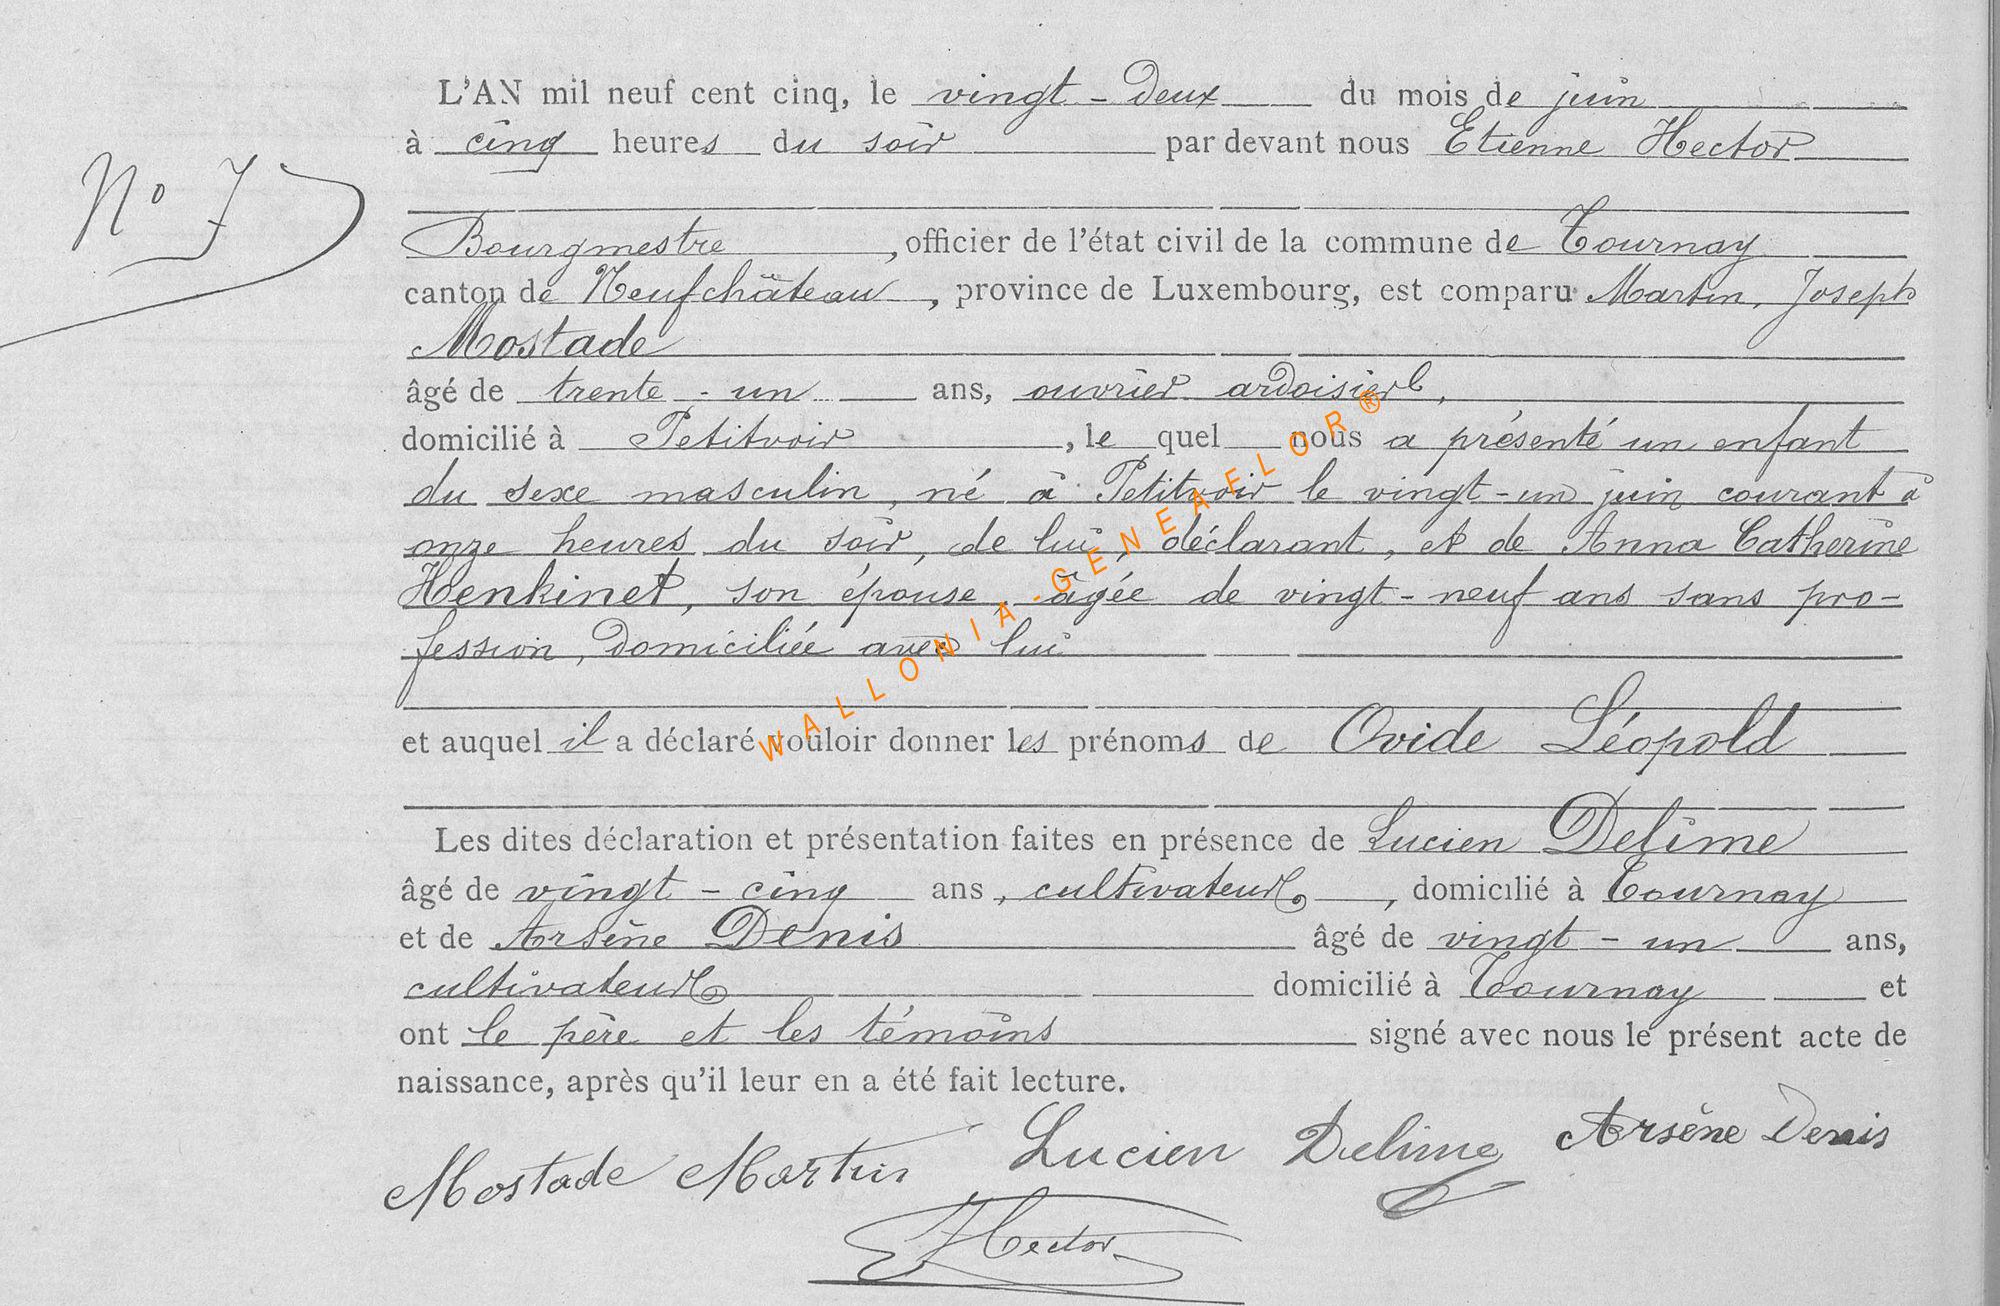 L'AN mil neuf cent cinq, le vingt-deux du mois de juin
à cinq heures du soir par devant nous Etienne Hector
No 7
Bourgmestre, officier de l'état civil de la commune de Tournay
canton de Neufchâteau, province de Luxembourg, est comparu Martin, Joseph
Mostade
âgé de trente-un ans, ouvrier ardoisier,
domicilié à Petitvoir, le quel nous a présenté un enfant
du sexe masculin, né à Petitvoir le vingt-un juin courant à
onze heures du soir, de lui, déclarant, et de Anna Catherine
Henkinet, son épouse, âgée de vingt-neuf ans sans pro-
fession, domiciliée avec lui
et auquel il a déclaré vouloir donner les prénoms de Ovide Léopold
Les dites déclaration et présentation faites en présence de Lucien Delime
âgé de vingt-cinq ans, cultivateur, domicilié à Tournay
et de Arsène Denis âgé de vingt-un ans,
cultivateur domicilié à Tournay et
ont le père et les témoins signé avec nous le présent acte de
naissance, après qu'il leur en a été fait lecture.
Mostade Martin Lucien Delime Arsène Denis
Hector
WALLONIA-GENEAELOR®